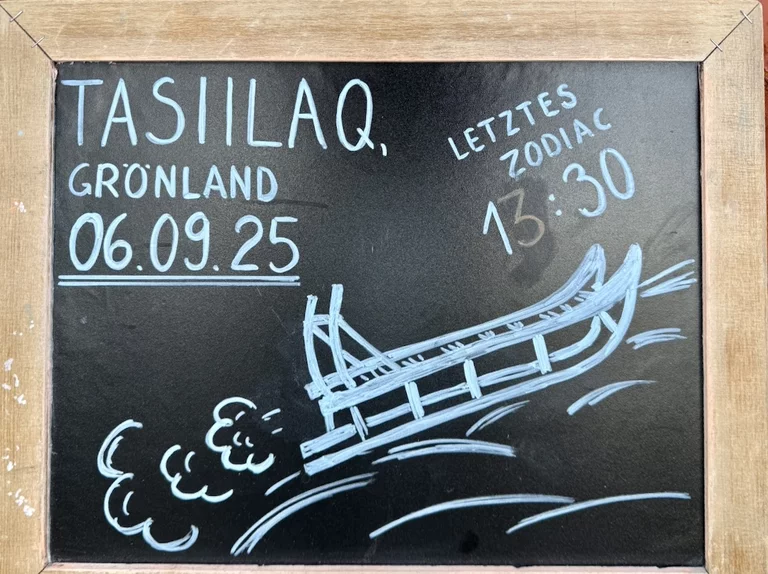 TASIILAQ,
GRÖNLAND
06.09.25
LETZTES
ZODIAC
13:30